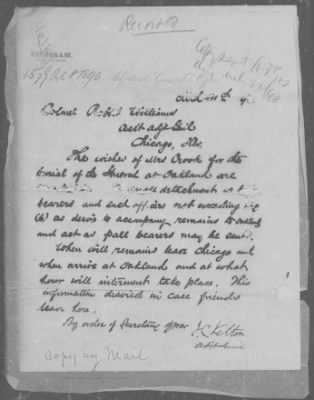 Record
TELEGRAM.
1579 A.C.P. 1890
Colonel Robt Williams
Asst Adjt Genl
Chicago, Ills.
The wishes of Mrs Crook for the
burial of the General at Oakland are
detachment as
bearers and such officers not exceeding
as desire to accompany remains to Oakland
and act as pall bearers may be sent.
When will remains leave Chicago and
when arrive at Oakland and at what
hour will interment take place. This
information desired in case friends
leave here.
By order of Secretary of War
J.C. Kelton
Copy by Mail